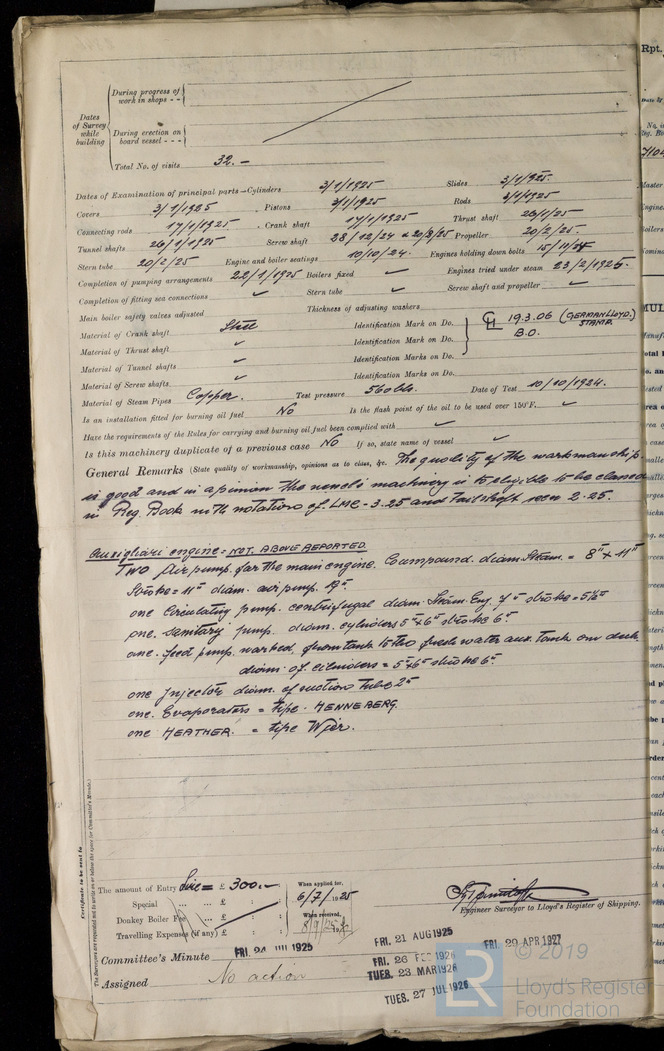 During progress of
work in shops - -
Dates
of Survey
while
building
During erection on
board vessel - - -
Total No. of visits 32.-
Dates of Examination of principal parts—Cylinders 3/1/1925 Slides 3/1/1925.
Covers 3/1/1925 Pistons 3/1/1925 Rods 3/1/1925
Connecting rods 17/1/1925 Crank shaft 17/1/1925 Thrust shaft 26/1/25
Tunnel shafts 26/1/1925 Screw shaft 28/12/24 & 20/2/25 Propeller 20/2/25.
Stern tube 20/2/25 Engine and boiler seatings 10/10/24. Engines holding down bolts 15/11/24
Completion of pumping arrangements 22/1/1925 Boilers fixed ✓ Engines tried under steam 23/2/1925.
Completion of fitting sea connections ✓ Stern tube ✓ Screw shaft and propeller ✓
Main boiler safety valves adjusted Thickness of adjusting washers
Material of Crank shaft Steel Identification Mark on Do. GL 19.3.06 (GERMAN LLOYD.) STAMP.
Material of Thrust shaft ✓ Identification Mark on Do. B.O.
Material of Tunnel shafts ✓ Identification Marks on Do.
Material of Screw shafts ✓ Identification Marks on Do.
Material of Steam Pipes Copper. Test pressure 560 lb. Date of Test 10/10/1924.
Is an installation fitted for burning oil fuel No Is the flash point of the oil to be used over 150°F. ✓
Have the requirements of the Rules for carrying and burning oil fuel been complied with ✓
Is this machinery duplicate of a previous case No If so, state name of vessel ✓
General Remarks (State quality of workmanship, opinions as to class, &c. The quality of the workmanship
is good and in apinion the vessel's machinery is to eligible to be classed
in Reg Book with notation of. LMC-3.25 and tail shaft seen 2.25.
Auxigliari engine = NOT ABOVE REPORTED.
TWO Air pump. for the main engine. Compound. diam Steam. = 8" x 11"
Stroke = 11" diam. air pump. 19".
one Circulating pump. centrifugal diam. Steam Eng. 7" stroke = 5½"
one. sanitary pump diam. cylinders 5"x6" stroke 6".
one. feed pump. worked, from tank to two fresh water aux. Tank on deck
diam. of cilinders = 5"x6" stroke 6".
one Injector diam. of suction tube 2"
one. Evaporators = tipe. HENNEBERG.
one HEATHER. = tipe Wier.
Certificate to be sent to
The Surveyors are requested not to write on or below the space for Committee's Minute.
The amount of Entry Fee = £ 300.- When applied for,
6/7/1925
Special ... ... £
Donkey Boiler Fee ... £ When received,
Travelling Expenses (if any) £ 8/9/25
Engineer Surveyor to Lloyd's Register of Shipping.
Committee's Minute FRI. 24 JUL 1925 FRI. 21 AUG 1925 FRI. 29 APR 1927
FRI. 26 FEB 1926
TUES. 23 MAR 1926
Assigned No action
TUES. 27 JUL 1926
Rpt.
© 2019
Lloyd's Register
Foundation
LR